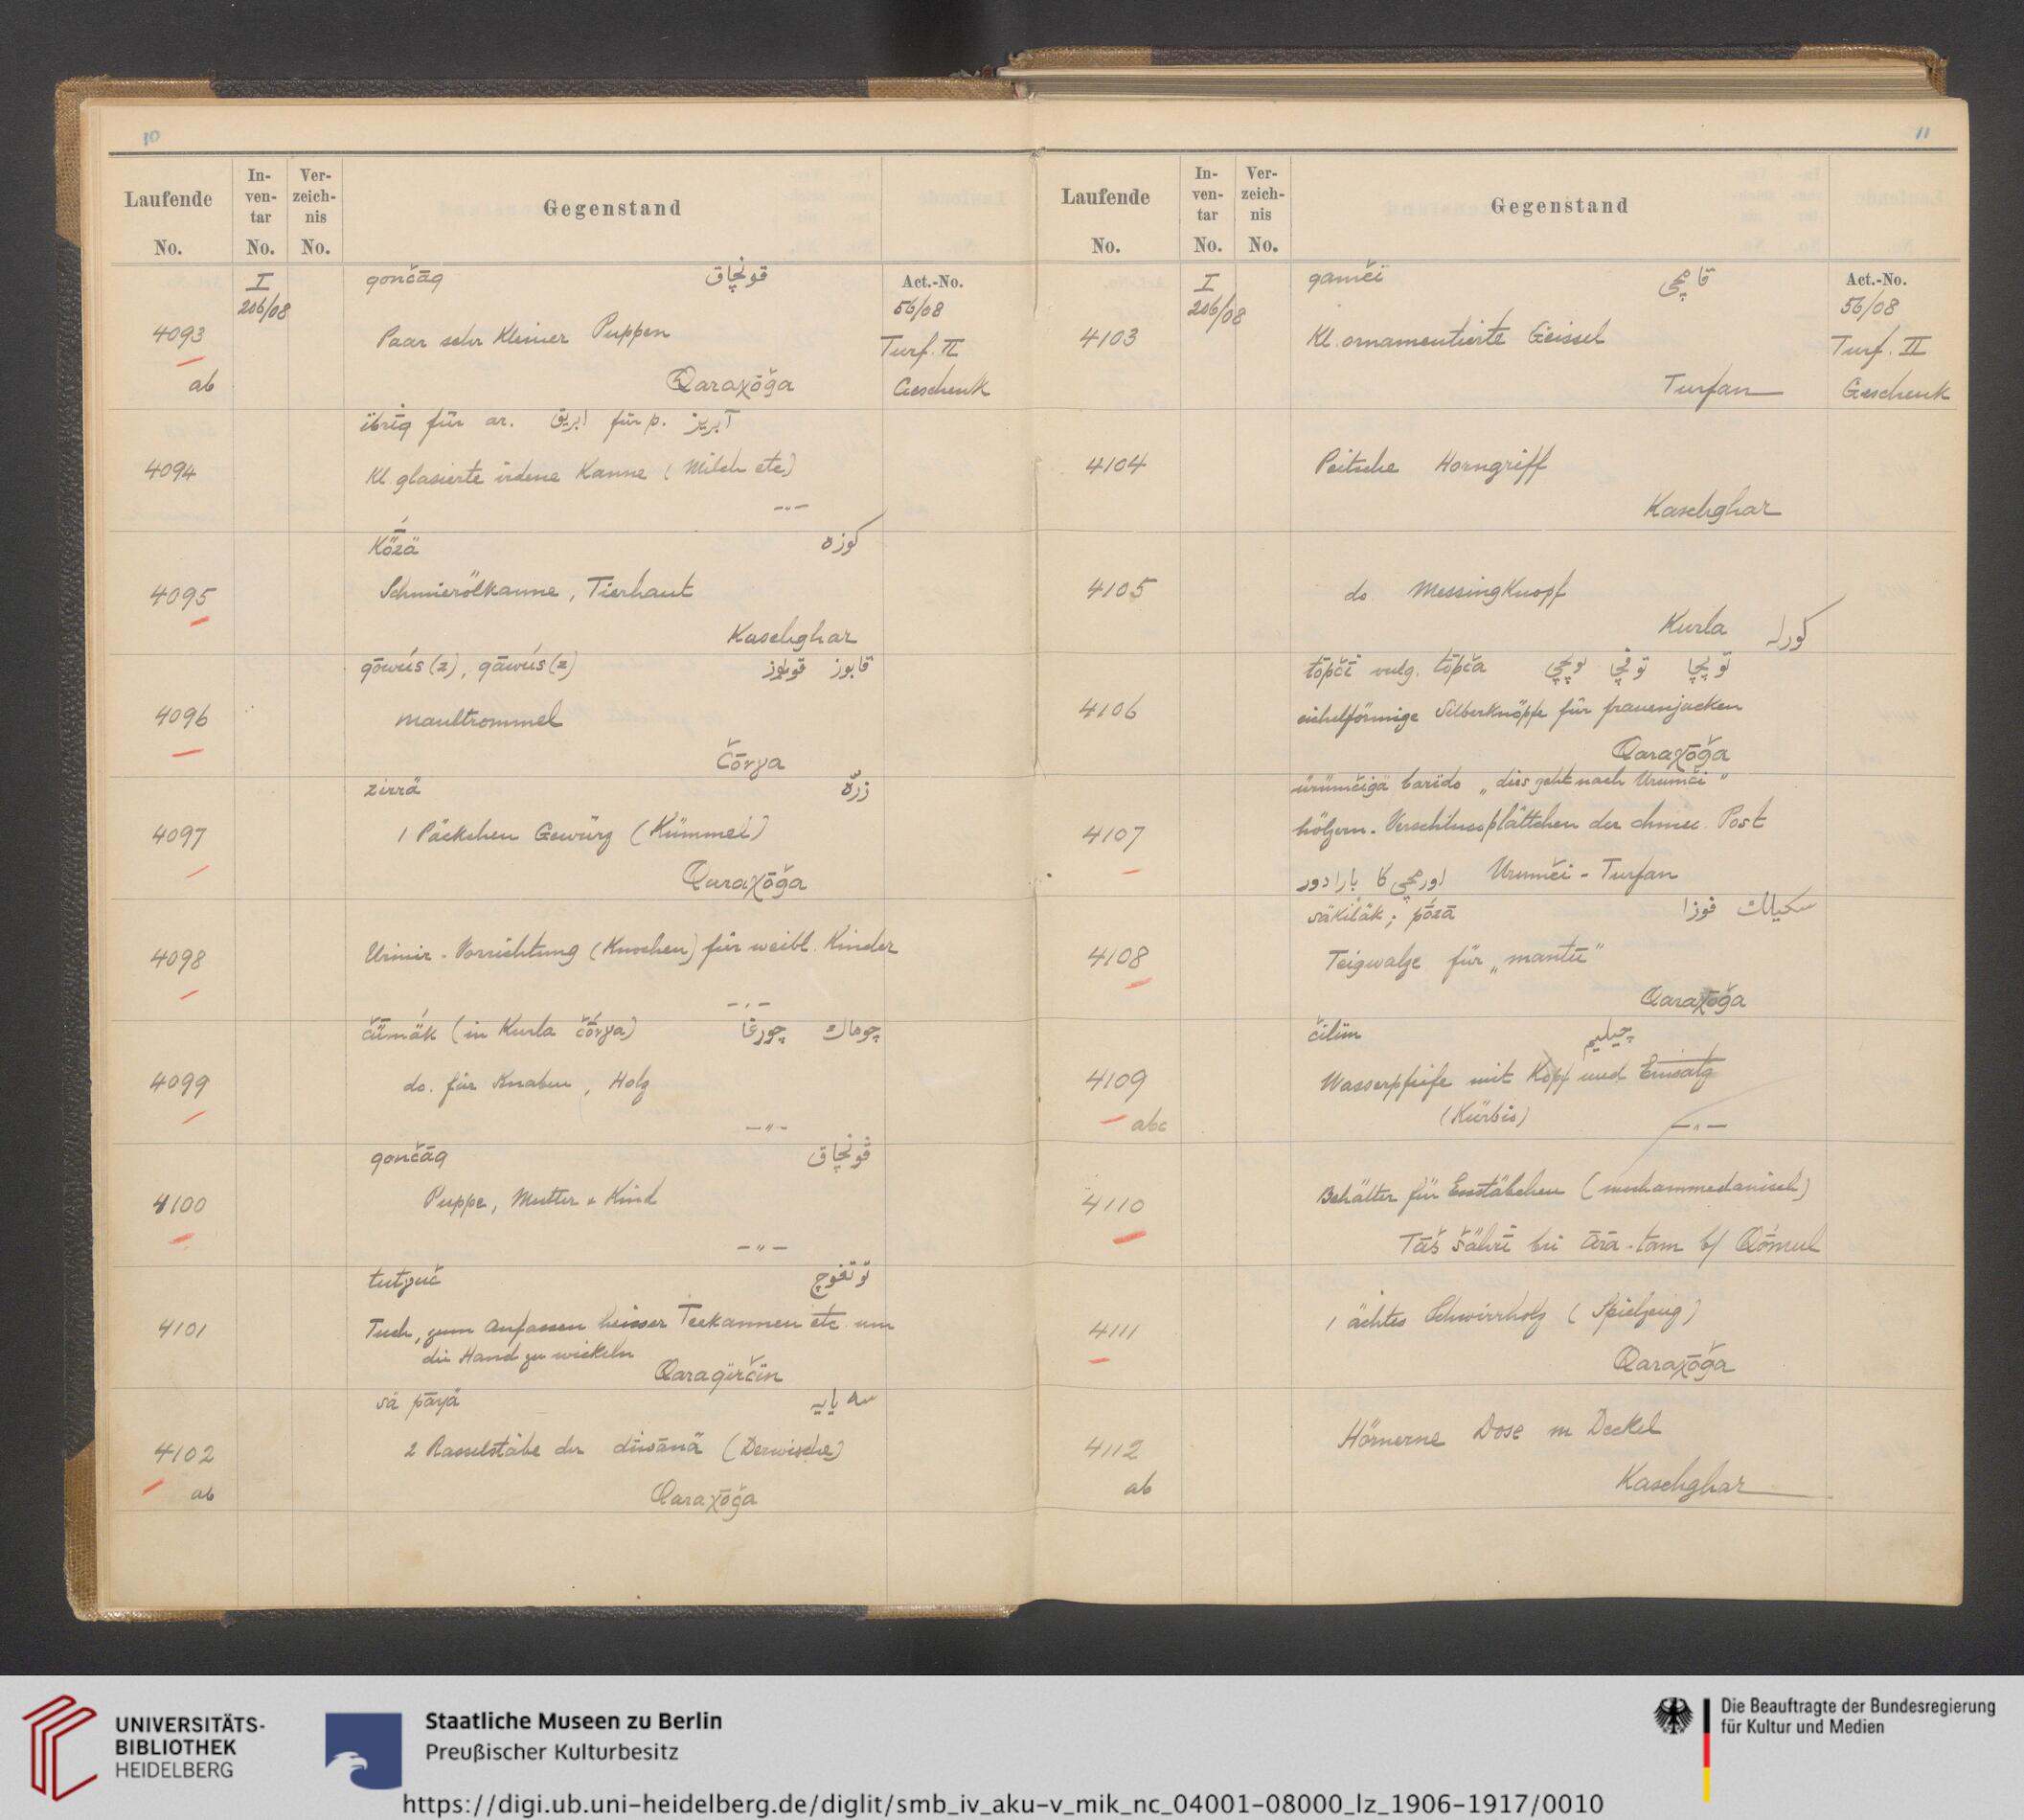 10
Laufende No. In-ven-tar No. Ver-zeich-nis No. Gegenstand
I 206/08
qončāq قونچاق
Act.-No. 56/08
4093 ab
Paar sehr kleiner Puppen
Turf. II
Qaraχōǧa
Geschenk
ibrīq für ar. ابريق für p. آبريز
4094
Kl. glasierte irdene Kanne (Milch etc)
-"-
Közä كوزه
4095
Schmierölkanne, Tierhaut
Kaschghar
qōwús(z), qāwús(z) قابوز
4096
Maultrommel
Čōrγa
zirrä زرّه
4097
1 Päckchen Gewürz (Kümmel)
Qaraχōǧa
4098
Urinir-Vorrichtung (Knochen) für weibl. Kinder
-"-
čümäk (in Kurla čōrγa) چورغا چوماك
4099
do. für Knaben, Holz
-"-
qončāq قونچاق
4100
Puppe, Mutter + Kind
-"-
tutγuč توتغوچ
4101
Tuch, zum Anfassen heisser Teekannen etc um
die Hand zu wickeln
Qaraqirčin
sä pāyä سه پايه
4102 ab
2 Rasselstäbe der diwānä (Derwische)
Qaraχōǧa
11
Laufende No. In-ven-tar No. Ver-zeich-nis No. Gegenstand
I 206/08
qamči
Act.-No. 56/08
4103
Kl. ornamentierte Geissel
Turf. II
Turfan
Geschenk
4104
Peitsche Horngriff
Kaschghar
4105
do Messingknopf
Kurla كورلە
töpčī vulg. töpča
4106
eichelförmige Silberknöpfe für Frauenjacken
Qaraχōǧa
ürümčigä barido „dies geht nach Urumči"
4107
hölzern. Verschlussplättchen der chines. Post
Urumči - Turfan
säkiläk; pōzā
4108
Teigwalze für „mantū"
Qaraχōǧa
čilim چيليم
4109 abc
Wasserpfeife mit Kopf und Einsatz
(Kürbis)
-"-
4110
Behälter für Essstäbchen (muhammedanisch)
Tāš šähri bei Ārā-tam b/ Qōmul
4111
1 ächtes Schwirrholz (Spielzeug)
Qaraχōǧa
4112 ab
Hörnerne Dose m Deckel
Kaschghar
UNIVERSITÄTS-
BIBLIOTHEK
HEIDELBERG
Staatliche Museen zu Berlin
Preußischer Kulturbesitz
Die Beauftragte der Bundesregierung
für Kultur und Medien
https://digi.ub.uni-heidelberg.de/diglit/smb_iv_aku-v_mik_nc_04001-08000_lz_1906-1917/0010